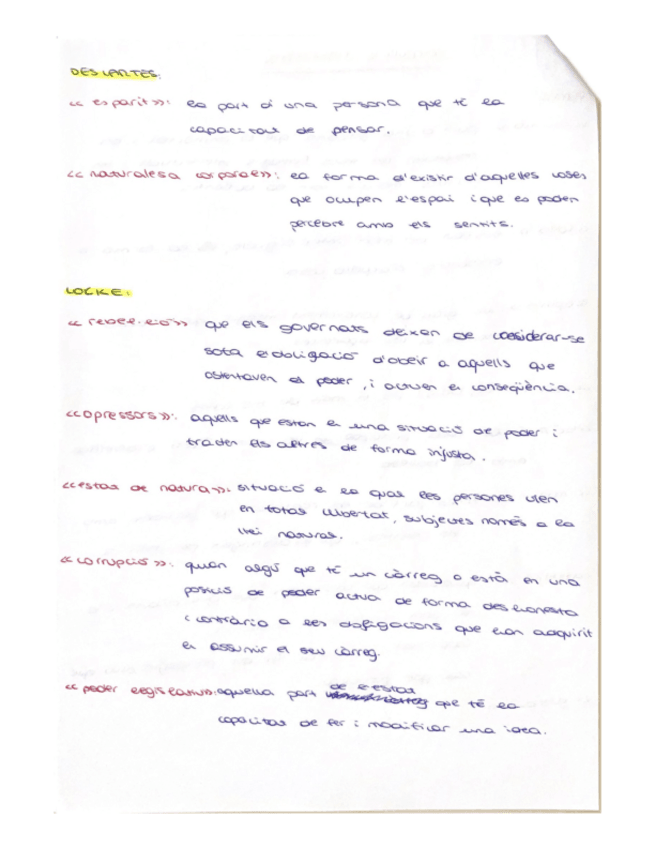 DESCARTES:
«esparit»: la part d'una persona que té la
capacitat de pensar.
«naturalesa corporal»: la forma d'existir d'aquelles coses
que ocupen l'espai i que es poden
percebre amb els sentits.
LOCKE:
«rebel·lió» que els governats deixen de considerar-se
sota l'obligació d'obeir a aquells que
ostentaven el poder, i actuen en conseqüència.
«opressors»: aquells que estan en una situació de poder i
tracten els altres de forma injusta.
«estat de natura»: situació en la qual les persones viuen
en total llibertat, subjectes només a la
llei natural.
«corrupció»: quan algú que té un càrreg o està en una
posició de poder actua de forma deshonesta
i contrària a les obligacions que han adquirit
en assumir el seu càrreg.
«poder legislatiu»: aquella part de l'estat que té la
capacitat de fer i modificar una idea.